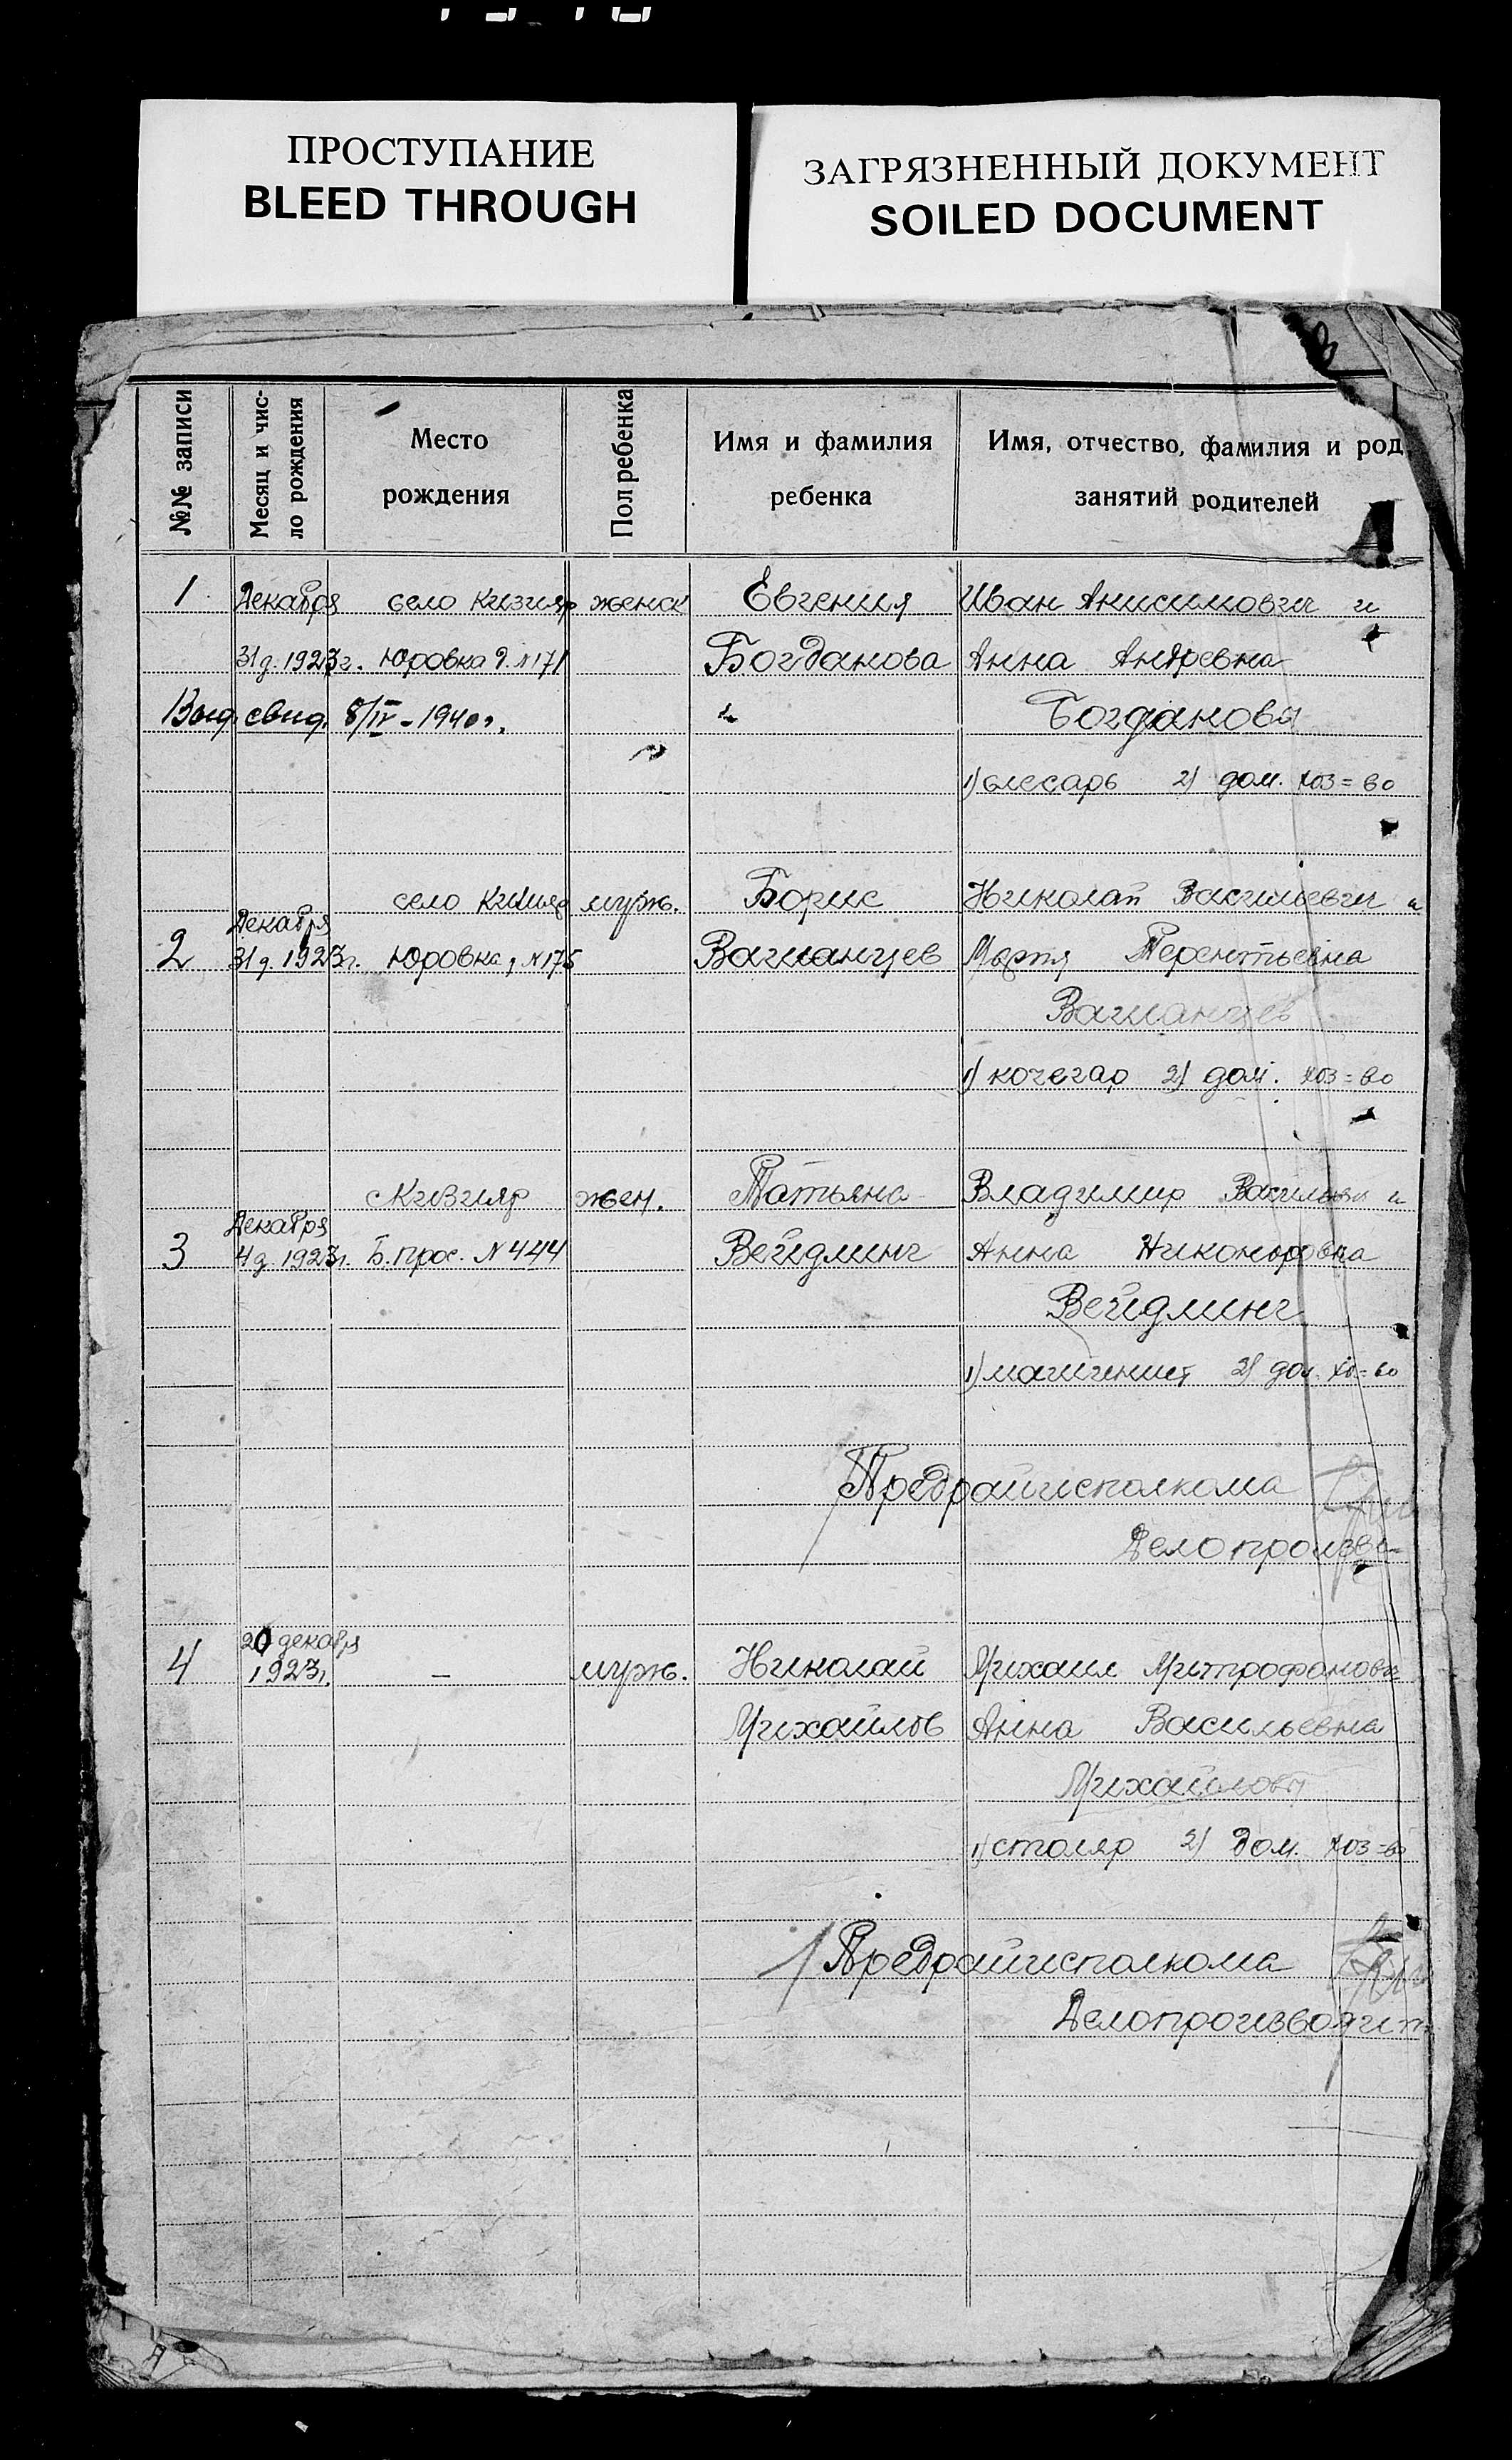 ПРОСТУПАНИЕ
BLEED THROUGH
ЗАГРЯЗНЕННЫЙ ДОКУМЕНТ
SOILED DOCUMENT
№№ записи
Месяц и чис-
ло рождения
Место
рождения
Пол ребенка
Имя и фамилия
ребенка
Имя, отчество, фамилия и род
занятий родителей
1 Декабря село Кизияр женск Евгения Иван Анисимович и
31 д. 1923 г. Юровка д. №171 Богданова Анна Андревна
Выд. свид. 8/IV - 1940 г. Богдановы
1) слесарь 2) дом. хоз=во
село Кизияр муж. Борис Николай Васильевич и
Декабря
2 31 д. 1923 г. Юровка, №175 Вагианцев Терентьевна
Вагианцев
1) кочегар 2) дом. хоз=во
Кизияр жен. Татьяна Владимир и
Декабря
3 4 д. 1923 г. Б. прос. №444 Вейдлинг Анна Никоноровна
Вейдлинг
1) 2) дом. хоз=во
Предрайисполкома
Делопроизв
20 декабря
4 1923 г. — муж. Николай Михаил Митрофанович
Михайлов Анна Васильевна
Михайловы
1) столяр 2) дом. хоз=во
Предрайисполкома
Делопроизводит